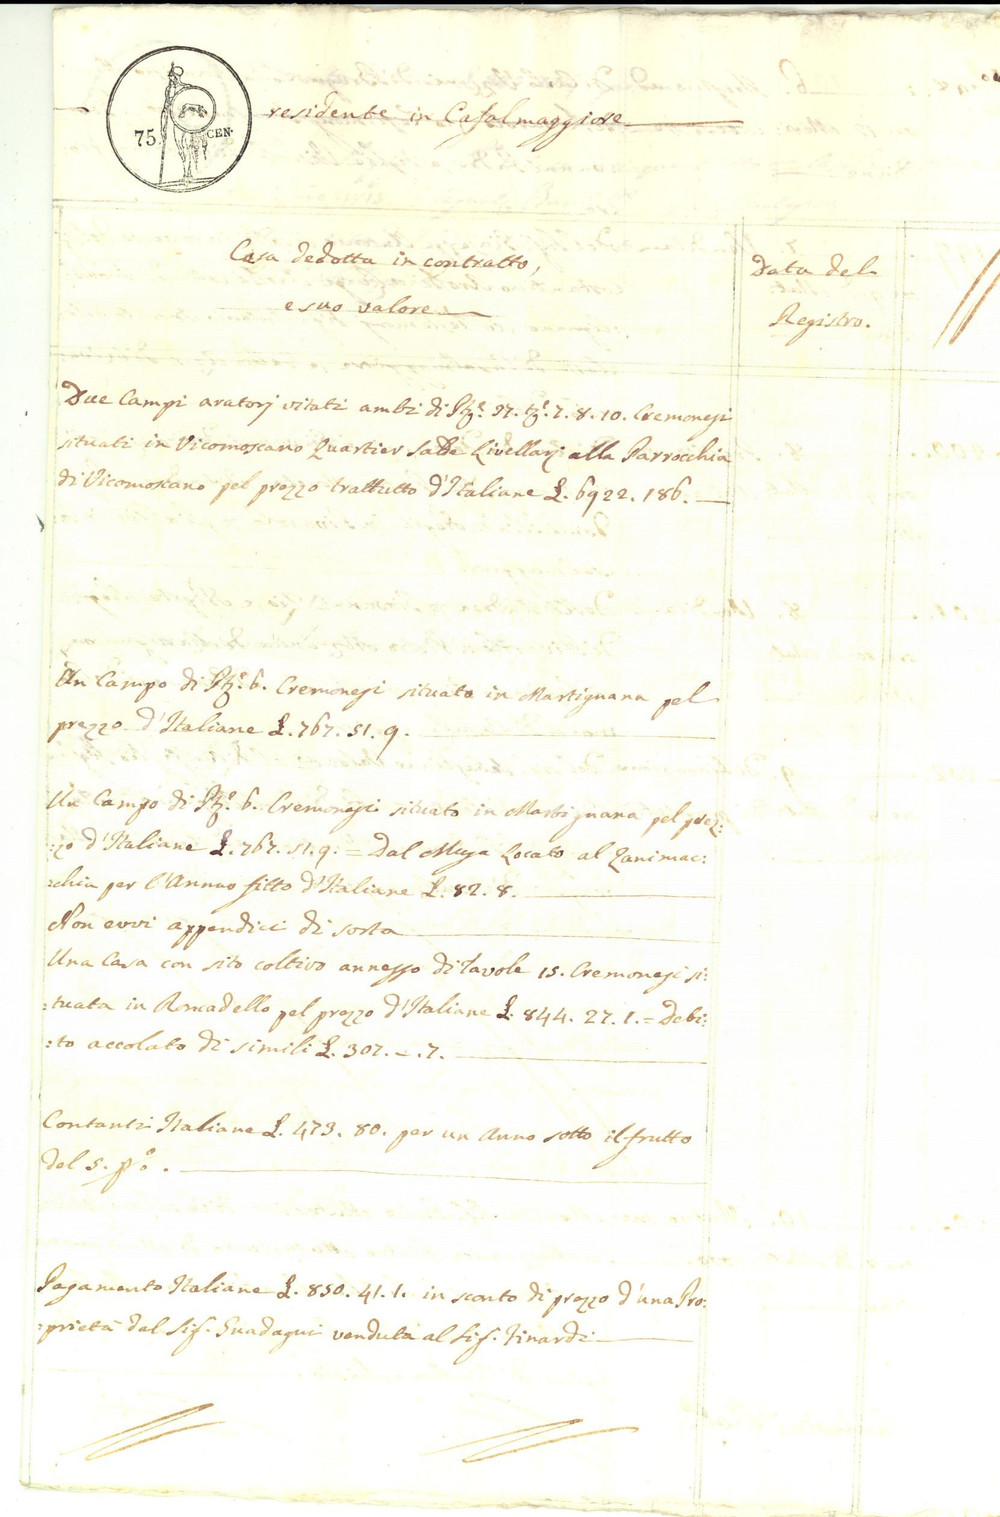 75. CEN.
residente in Casalmaggiore
Cosa dedotta in contratto,
e suo valore
Data del
Registro.
Due Campi aratorj vitati ambi di Ptẽ. 37. tẽ. 7. 8. 10. Cremonesi
situati in Vicomoscano Quartier Livellarj alla Parrocchia
di Vicomoscano pel prezzo trattutto d'Italiane L. 6922. 186.
Un Campo di 6. Cremonesi situato in Martignana pel
prezzo d'Italiane L. 767. 51. 9.
Un Campo di 6. Cremonesi situato in Martignana pel prez:
:zo d'Italiane L. 767. 51. 9. = Dal Muja Locato al Zanimac:
:chia per l'Annuo fitto d'Italiane L. 82. 8.
Non evvi appendici di sorta
Una Casa con sito coltivo annesso di Tavole 15. Cremonesi si:
:tuata in Roncadello pel prezzo d'Italiane L. 844. 27. 1. = Debi:
:to accolato di simili L. 307. - . 7.
Contanti Italiane L. 473. 80. per un Anno sotto il frutto
del 5. p.o
Pagamento Italiane L. 850. 41. 1. in sconto di prezzo d'una Pro:
:prietà dal Sig. Guadagni venduta al Sig. Finardi